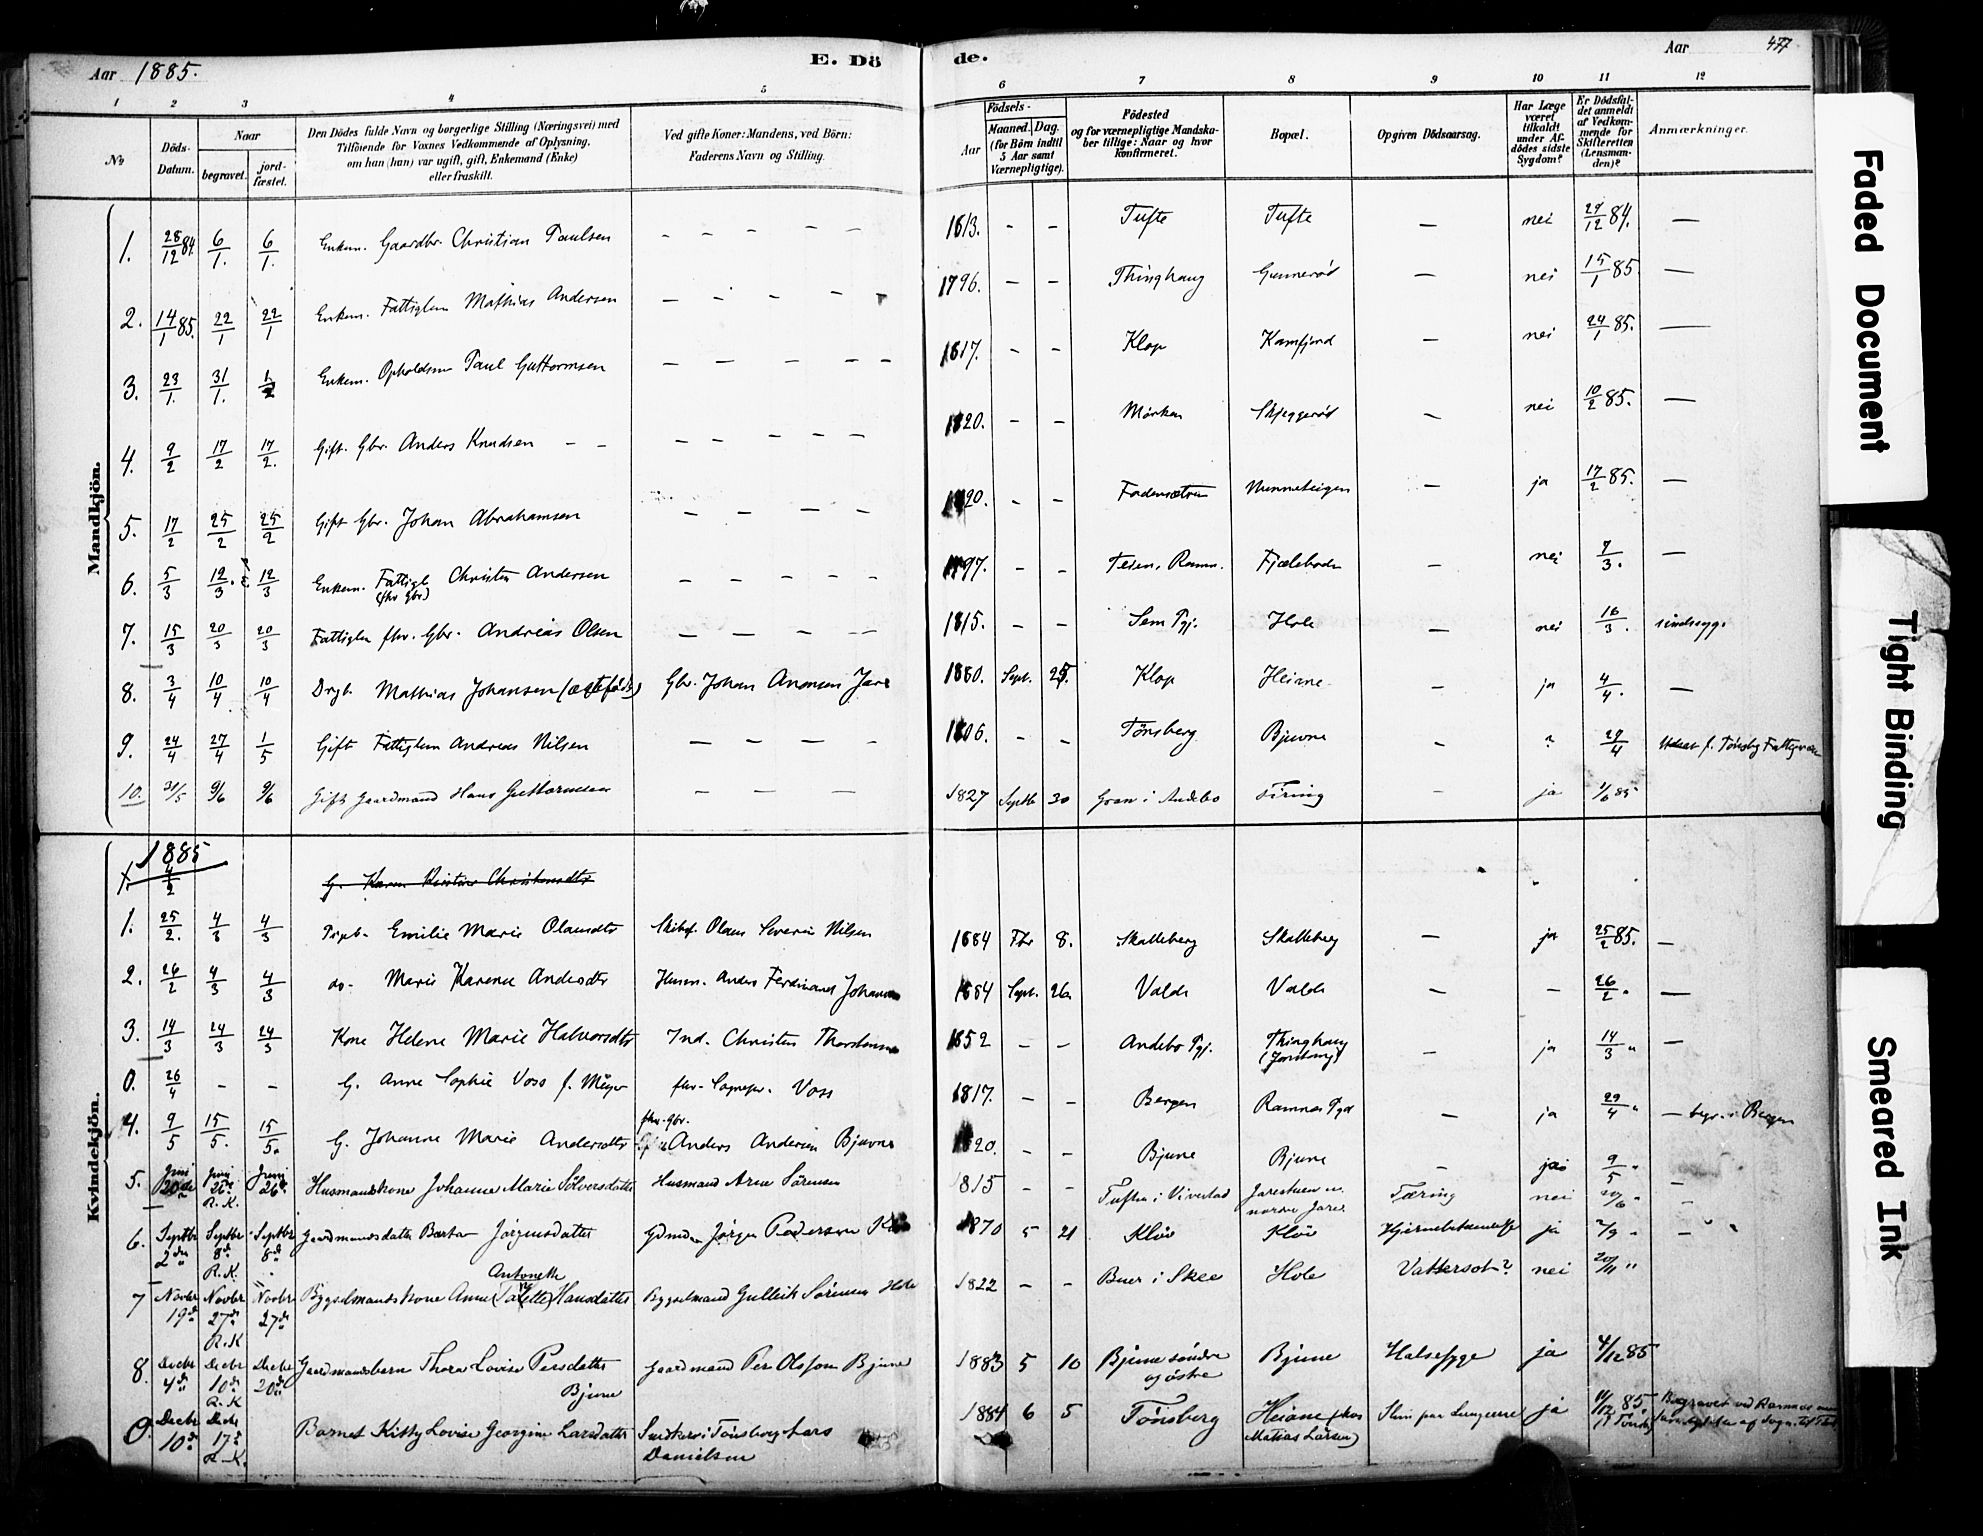 Aar 1885.
E. Dö
de.
Aar 477
1 2 3 4 5 6 7 8 9 10 11 12
No
Döds-Datum.
Naar
begravet.
jord-fæstet.
Den Dödes fulde Navn og borgerlige Stilling (Næringsvei) med
Tilföiende for Voxnes Vedkommende af Oplysning,
om han (hun) var ugift, gift, Enkemand (Enke)
eller fraskilt.
Ved gifte Koner: Mandens, ved Börn:
Faderens Navn og Stilling.
Födsels-
Aar
Maaned. Dag.
(for Börn indtil
5 Aar samt
Værnepligtige).
Födested
og for værnepligtige Mandska-
ber tillige: Naar og hvor
konfirmeret.
Bopæl.
Opgiven Dödsaarsag.
Har Læge
været
tilkaldt
under Af-
dödes sidste
Sygdom?
Er Dödsfal-
det anmeldt
af Vedkom-
mende for
Skifteretten
(Lensman-
den)?
Anmærkninger.
Mandkjön.
1. 28/12 84. 6/1. 6/1. Enkem. Gaardbr. Christian Paulsen – – – – – 1813. – – Tufte Tufte — nei 29/12 84. —
2. 14/1 85. 22/1 22/1 Enkem. Fattiglem Mathias Andersen – – – – – 1796. – – Thinghaug Gunnerød — nei 15/1 85. —
3. 23/1. 31/1. 1/2 Enkem. Opholdsm Paul Guttormsen – – – – – 1817. – – Klop Kamfjord — nei 24/1 85. —
4. 9/2 17/2 17/2. Gift. Gbr. Anders Knudsen – – – – – – – 1820. – – Mørken Skjeggerød — nei 10/2 85. —
5. 17/2 25/2 25/2 Gift Gbr. Johan Abrahamsen – – – – 1820. – – Nunneteigen — ja 17/2 85. —
6. 5/3 12/3. 12/3 Enkem. Fattigl (fhv Gbr) Christen Andersen – – – – – 1797. – – Teien, Ramn. Fjæleboden — nei 7/3. —
7. 15/3 20/3 20/3 Fattiglem fhv. Gbr. Andreas Olsen – – – – 1815. – – Sem Pgj. Hole — nei 16/3. sindssyg.
8. 3/4 10/4 10/4 Drgb. Mathias Johansen (ægtefødt) Gbr. Johan Anonsen Jare 1880. Sept. 25. Klop Heiane — ja 4/4. —
9. 24/4 27/4 1/5 Gift Fattiglem Andreas Nilsen – – – – 1806. – – Tønsberg Bjuvne – ? 29/4 Udsat f. Tønsbg Fattigvæsen
10. 31/5 9/6 9/6 Gift Gaardmand Hans Guttormsen – – – 1827 Septbr 30 Gran i Andebo Firing – ja 1/6 85
Kvindekjön.
1885
1. 4/2 G. Karen Kirstine Christensdtr
1. 25/2. 4/3 4/3 Pigeb. Emilie Marie Olausdtr Skibsf. Olaus Severin Nilsen 1884 Fbr 8. Skalleberg Skalleberg — ja 25/2 85. —
2. 26/2 4/3 4/3 do. Marie Karense Andersdtr Husm. Anders Ferdinand Johansen 1884 Sept. 26. Valde Valde — – 26/2. —
3. 14/3 24/3 24/3 Kone Helene Marie Halvorsdtr Ind. Christen Thorstensen 1852 – – Andebo Pgj. Thinghaug — ja 14/3 " —
0. 26/4 – – G. Anne Sophie Voss f. Meyer fhv. Sognepr. Voss 1817. – – Bergen Ramnes Pgd — ja 29/4 " — begr. i Bergen
4. 9/5 15/5. 15/5. G. Johanne Marie Andersdtr fhv. Gbr. Anders Andersen Bjuvne 1820. – – Bjune Bjune – ja 9/5 " –
5. Juni 20de Juni 26de R.K. Juni 26de Husmandskone Johanne Marie Sölversdatter Husmand Arne Sörensen 1815 – – Tuften i Vivestad Jarestuen u. nordre Jare Tæring nei 20/6 " –
6. Septbr 2den Septbr 8de R.K. Septbr 8de Gaardmandsdatter Berta Jörgensdatter Gdmd. Jörgen Pedersen Klöv 1870 5 21 Klöv Klöv Hjernebetændelse ja 2/9 " –
7 Novbr 19de Novbr 27de R.K Novbr 27de Bygselmands Kone Anne Antonette Hansdatter Bygselmand Gullik Sörensen Hole 1822 – – Buer i Skee Hole Vattersot? nei 20/11 "
8. Decbr 4de Decbr 10de R.K Decbr 20de Gaardmandsbarn Thora Lovise Persdatter Bjune Gaardmand Per Olsson Bjune 1883 5 10 Bjune söndre og östre Bjune Halsesyge ja 4/12 85
0. Decbr 10de Decbr 17de R.K. Barnet Kitty Lovise Georgine Larsdatter Snedker i Tönsberg Lars Danielsen 1884 6 5 Tönsberg Heiane (hos Matias Larsen) Slim paa Lungerne ja 11/12 85. i Tönsbg Begravet ved Ramnes
Faded Document
Tight Binding
Smeared Ink